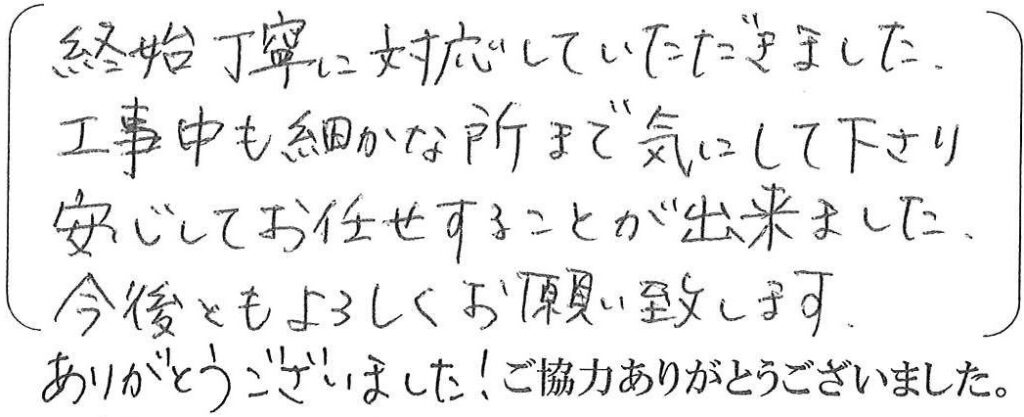 終始丁寧に対応していただきました.
工事中も細かな所まで気にして下さり
安心してお任せすることが出来ました.
今後ともよろしくお願い致します.
ありがとうございました!ご協力ありがとうございました。